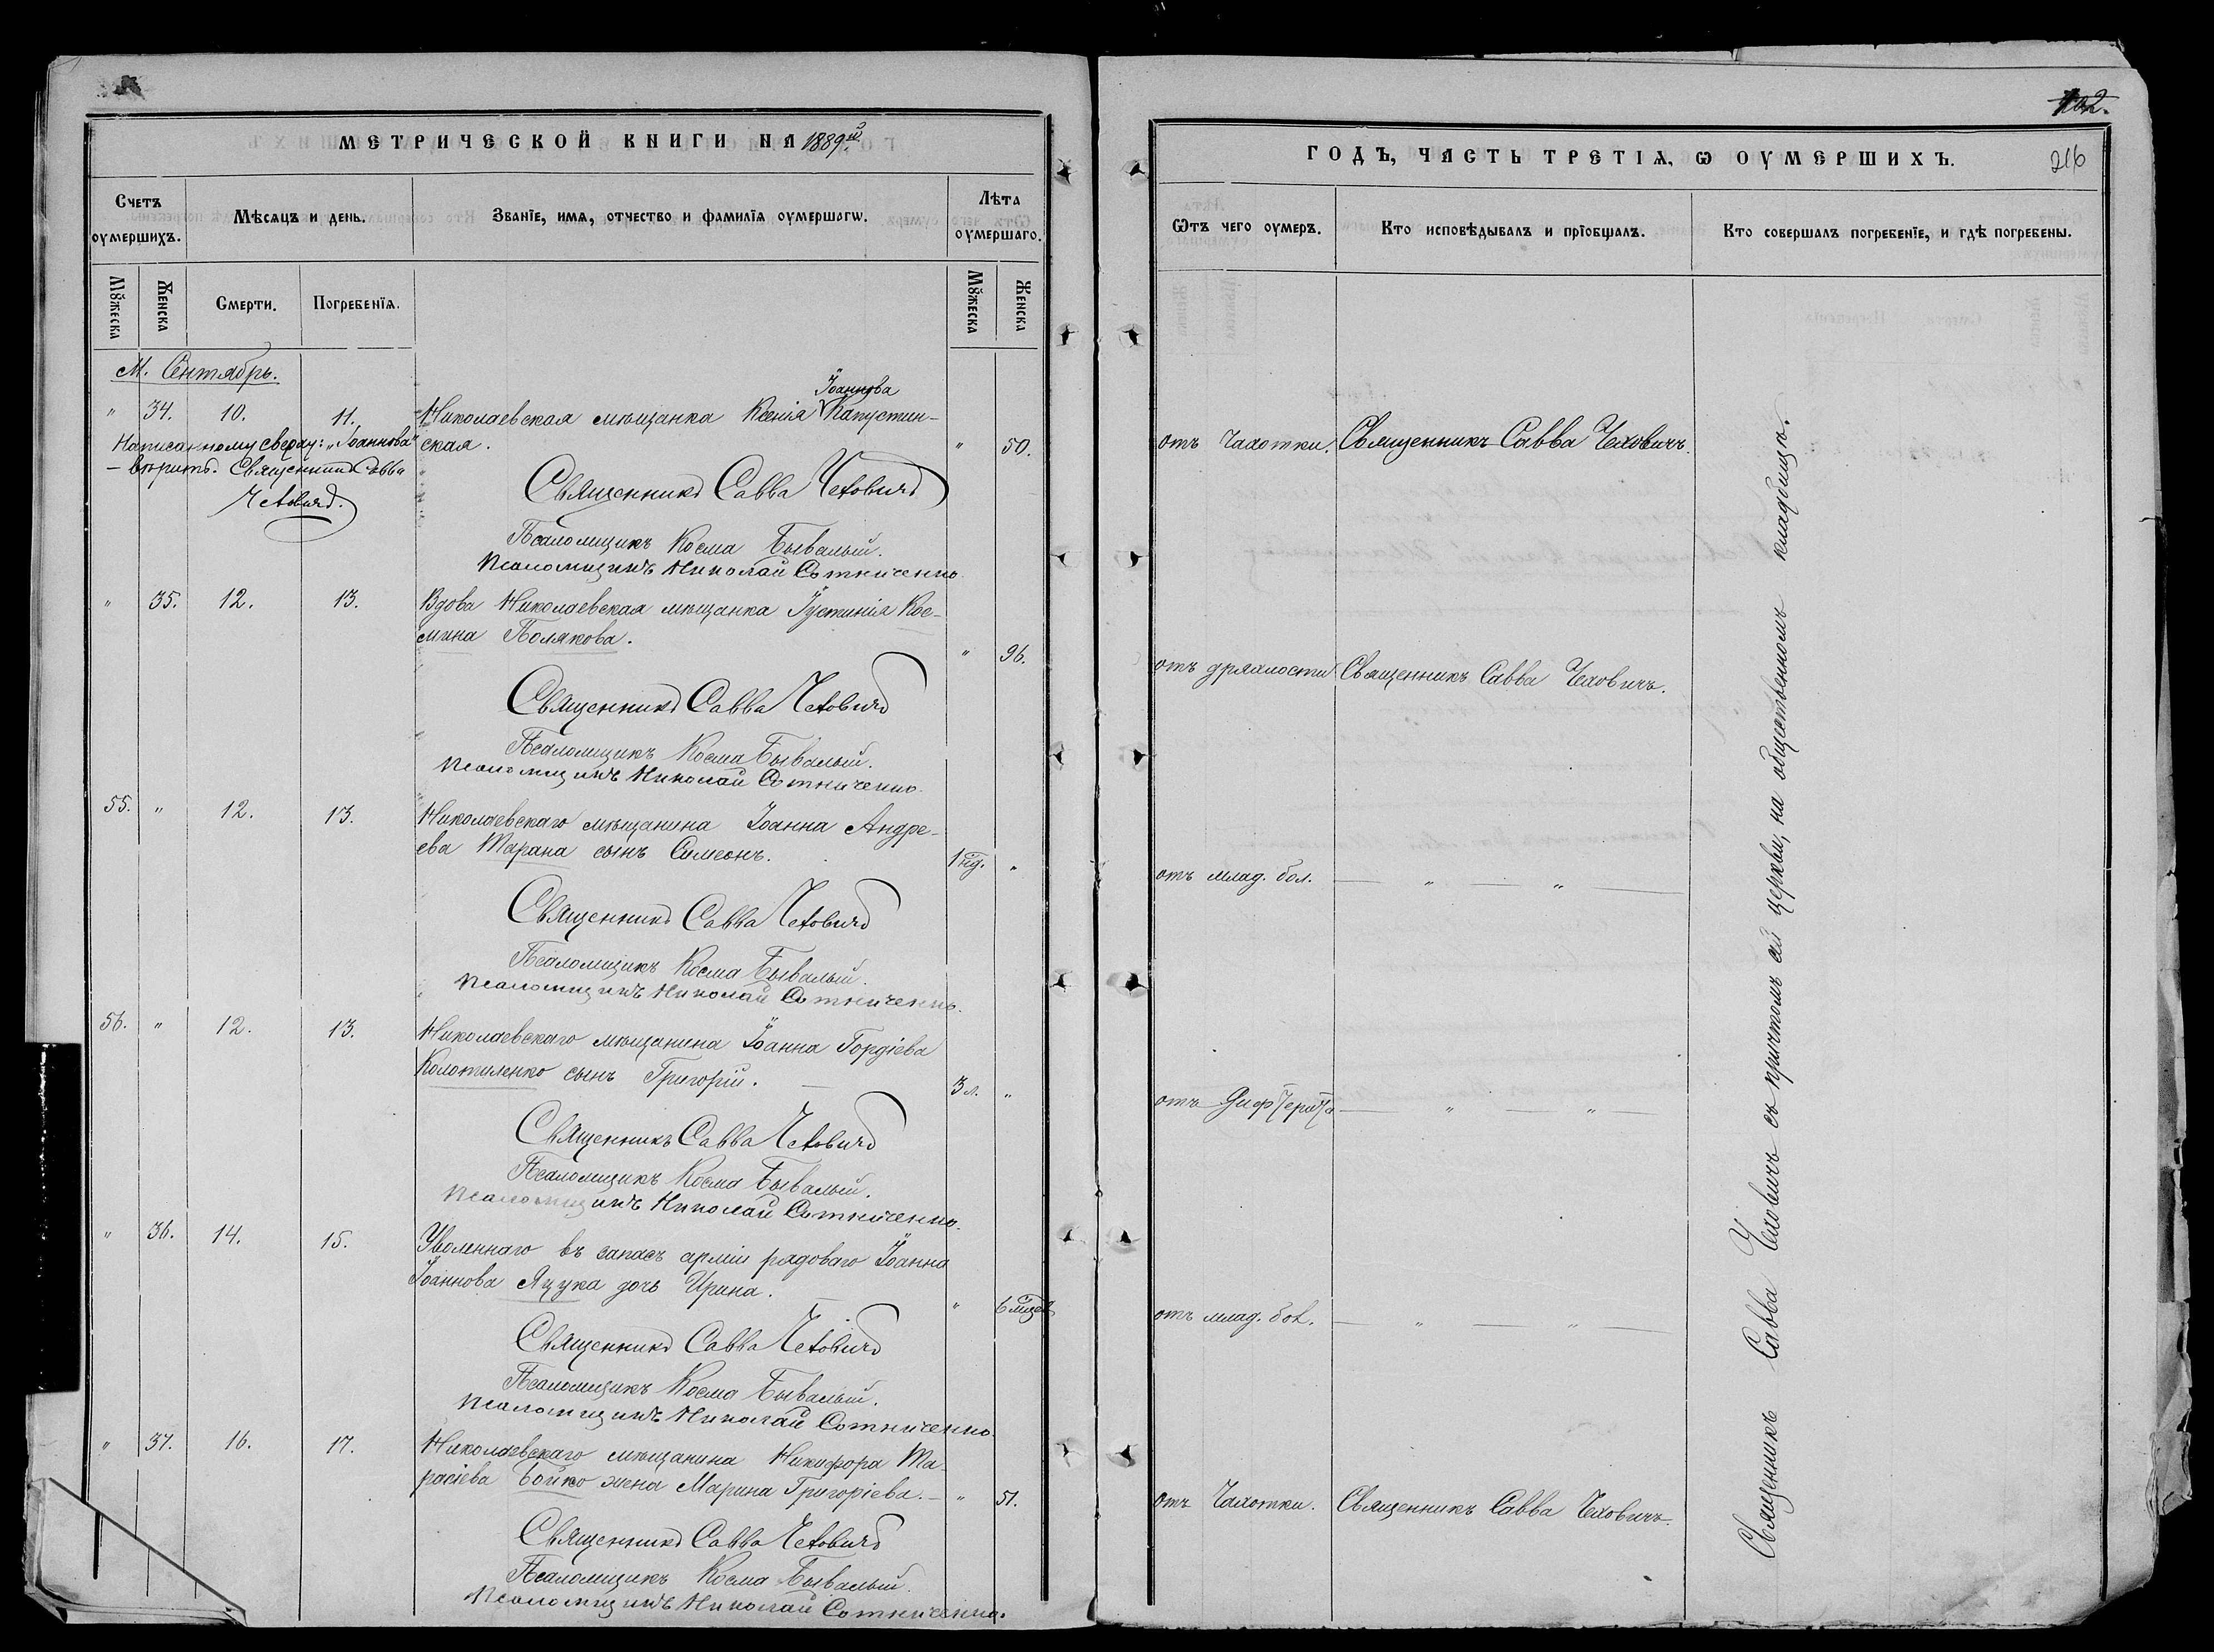 МЕТРИЧЕСКОЙ КНИГИ НА 1889й
Счетъ оумершихъ.
Мѣсяцъ и день.
Званїе, имя, отчество и фамилїя оумершагω.
Лѣта оумершаго.
Мꙋжеска
Женска
Смерти.
Погребенїя.
Мꙋжеска
Женска
М. Сентябрь.
" 34. 10. 11. Николаевская мѣщанка Ксенія Іоаннова Капустин-
ская. " 50.
Написанному сверху: "Іоаннова"
– вѣрить. Священникъ Савва
Чехович.
Священникъ Савва Чеховичъ
Псаломщикъ Косма Бывалый.
Псаломщикъ Николай Сотниченко.
" 35. 12. 13. Вдова Николаевская мѣщанка Іустинія Кос-
мина Полякова. " 96.
Священникъ Савва Чеховичъ
Псаломщикъ Косма Бывалый.
Псаломщикъ Николай Сотниченко.
55. " 12. 13. Николаевскаго мѣщанина Іоанна Андре-
ева Тарана сынъ Симеонъ. 1 нд. "
Священникъ Савва Чеховичъ
Псаломщикъ Косма Бывалый.
Псаломщикъ Николай Сотниченко.
56. " 12. 13. Николаевскаго мѣщанина Іоанна Гордіева
Колотиленко сынъ Григорій. 3 л. "
Священникъ Савва Чеховичъ
Псаломщикъ Косма Бывалый.
Псаломщикъ Николай Сотниченко.
" 36. 14. 15. Уволеннаго въ запасъ арміи рядоваго Іоанна
Іоаннова Яцука дочь Ирина. " 6 мцев
Священникъ Савва Чеховичъ
Псаломщикъ Косма Бывалый.
Псаломщикъ Николай Сотниченко.
" 37. 16. 17. Николаевскаго мѣщанина Никифора Та-
расіева Бойко жена Марина Григоріева. – " 51.
Священникъ Савва Чеховичъ
Псаломщикъ Косма Бывалый.
Псаломщикъ Николай Сотниченко.
216
ГОДЪ, ЧАСТЬ ТРЕТІЯ, Ѡ ОУМЕРШИХЪ.
Ѿтъ чего оумеръ.
Кто исповѣдывалъ и прїобщалъ.
Кто совершалъ погребенїе, и гдѣ погребены.
отъ Чахотки. Священникъ Савва Чеховичъ.
отъ дряхлости Священникъ Савва Чеховичъ.
отъ млад. бол. — " — " —
отъ Дифтерита — " — " —
отъ млад. бол. — " — " —
отъ Чахотки. Священникъ Савва Чеховичъ.
Священникъ Савва Чеховичъ съ причтомъ сей церкви, на общественномъ кладбищѣ.